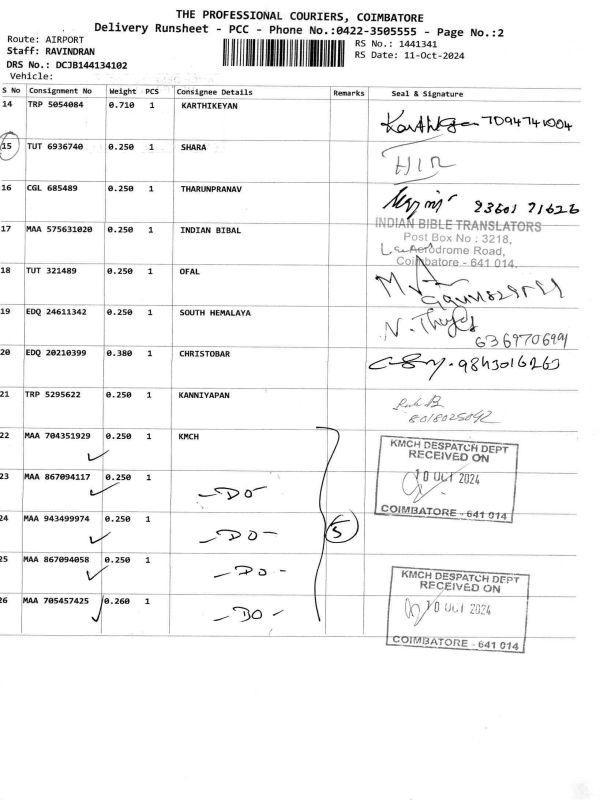 THE PROFESSIONAL COURIERS, COIMBATORE
Delivery Runsheet - PCC - Phone No.:0422-3505555 - Page No.:2
Route: AIRPORT
RS No.: 1441341
Staff: RAVINDRAN
RS Date: 11-Oct-2024
DRS No.: DCJB144134102
Vehicle:
S No Consignment No Weight PCS Consignee Details Remarks Seal & Signature
14 TRP 5054084 0.710 1 KARTHIKEYAN
Karthikeyan 7094741004
15 TUT 6936740 0.250 1 SHARA
16 CGL 685489 0.250 1 THARUNPRANAV
93601 71626
17 MAA 575631020 0.250 1 INDIAN BIBAL
INDIAN BIBLE TRANSLATORS
Post Box No : 3218,
Aerodrome Road,
Coimbatore - 641 014.
18 TUT 321489 0.250 1 OFAL
19 EDQ 24611342 0.250 1 SOUTH HEMALAYA
20 EDQ 20210399 0.380 1 CHRISTOBAR
9843016263
21 TRP 5295622 0.250 1 KANNIYAPAN
8018025092
22 MAA 704351929 0.250 1 KMCH
KMCH DESPATCH DEPT
RECEIVED ON
10 OCT 2024
COIMBATORE - 641 014
23 MAA 867094117 0.250 1 -DO-
24 MAA 943499974 0.250 1 -DO-
5
25 MAA 867094058 0.250 1 -DO-
26 MAA 705457425 0.260 1 -DO-
KMCH DESPATCH DEPT
RECEIVED ON
10 OCT 2024
COIMBATORE - 641 014